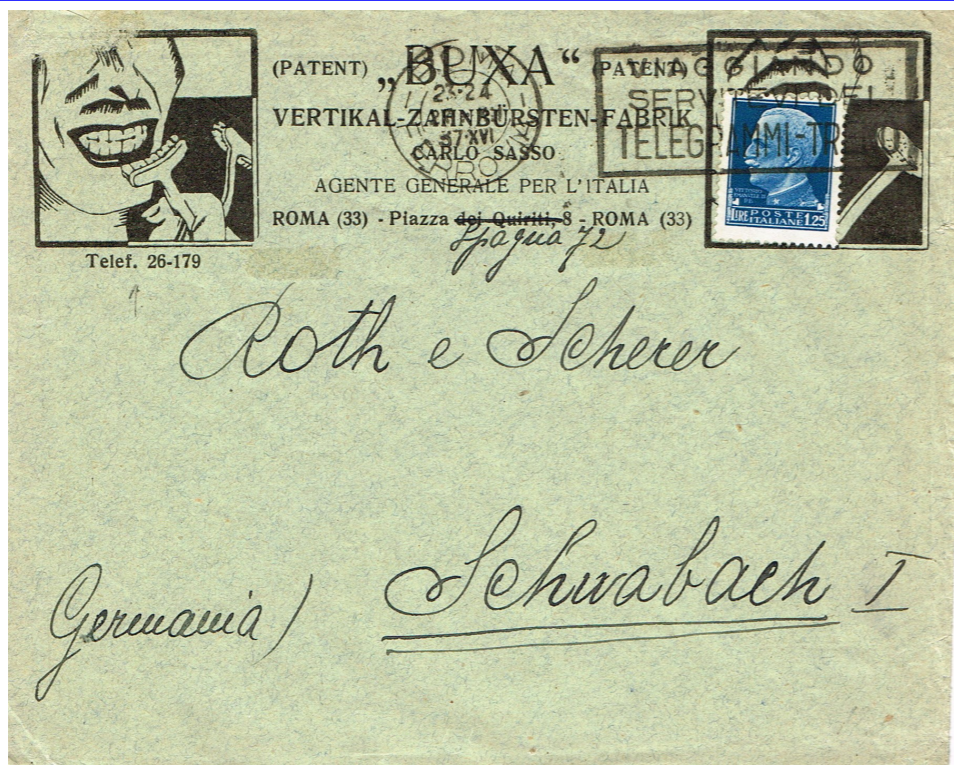 (PATENT) „BUXA“ (PATENT)
VERTIKAL-ZAHNBÜRSTEN-FABRIK
CARLO SASSO
AGENTE GENERALE PER L'ITALIA
ROMA (33) - Piazza dei Quiriti, 8 - ROMA (33)
Spagna 72
Telef. 26-179
ROMA
23-24
37 XVI
VIAGGIANDO
SERVITEVI DEI
TELEGRAMMI-TRENO
POSTE
LIRE ITALIANE 1,25
Roth e Scherer
Schwabach I
Germania)